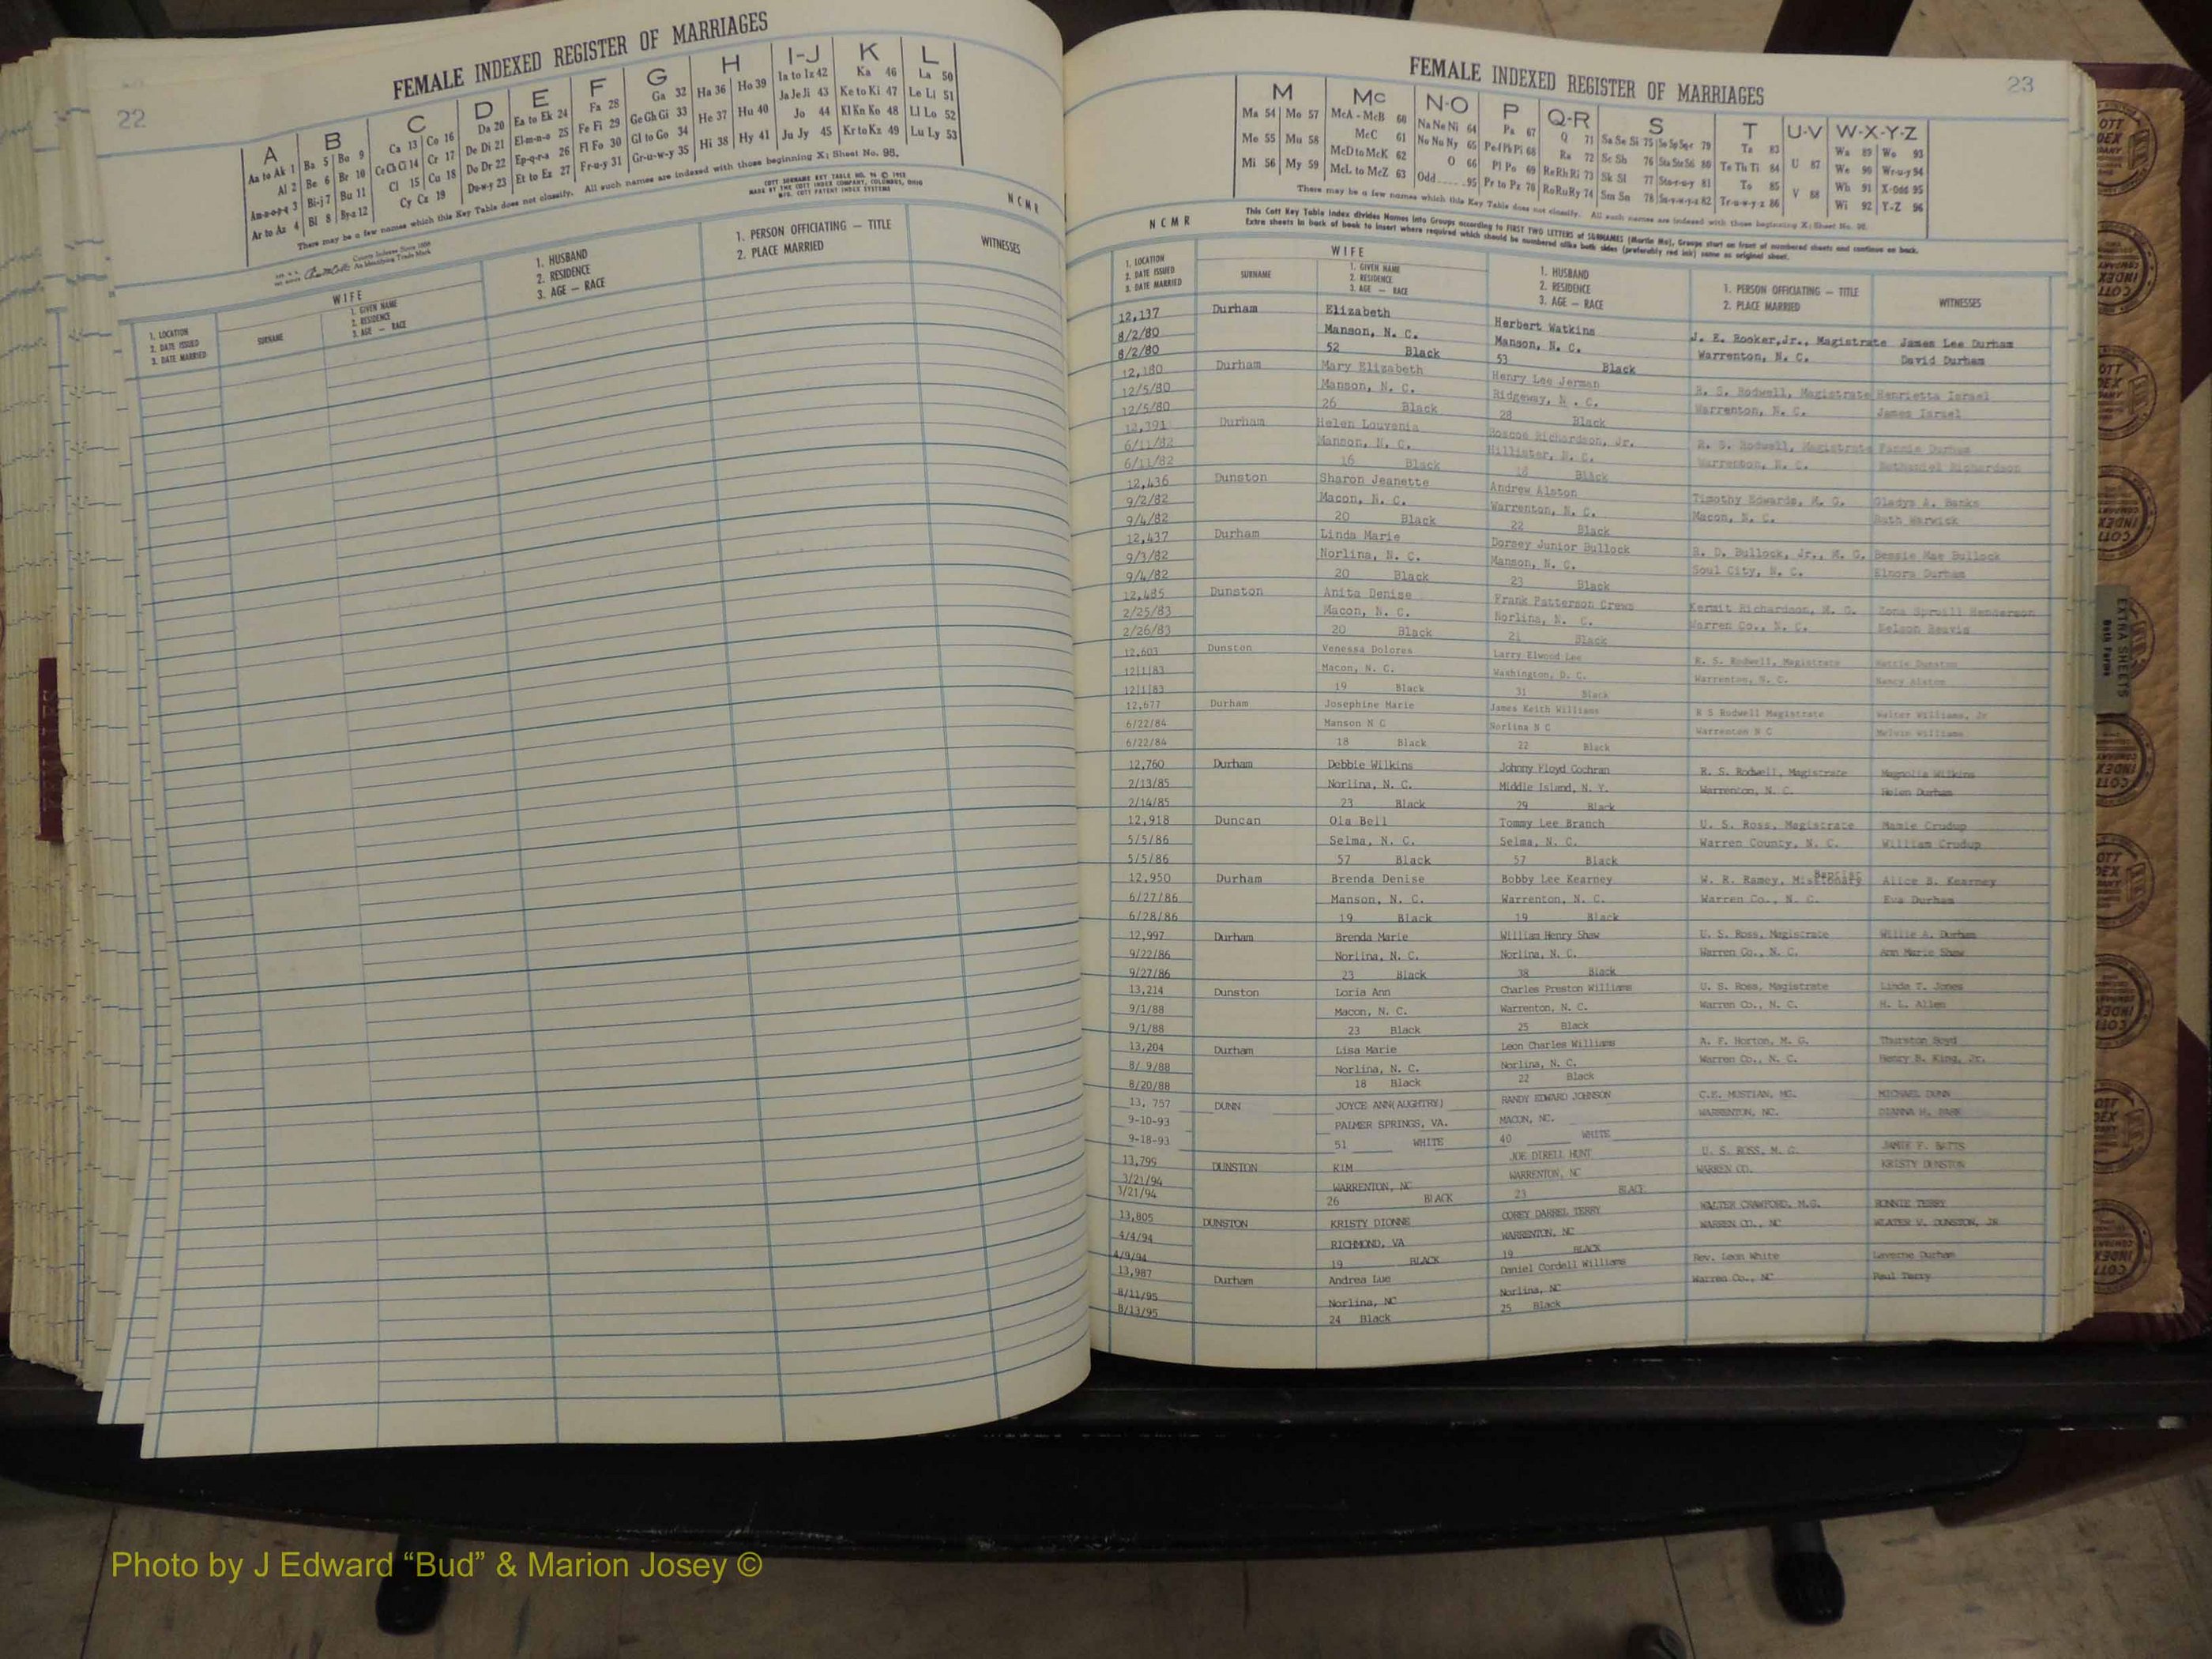 22
FEMALE INDEXED REGISTER OF MARRIAGES
A B C D E F G H I-J K L
Aa to Ak 1 Ba 5 Bo 9 Ca 13 Co 16 Da 20 Ea to Ek 24 Fa 28 Ga 32 Ha 36 Ho 39 Ia to Iz 42 Ka 46 La 50
Al 2 Be 6 Br 10 Ce Ch Ci 14 Cr 17 De Di 21 El-m-n-o 25 Fe Fi 29 Ge Gh Gi 33 He 37 Hu 40 Ja Je Ji 43 Ke to Ki 47 Le Li 51
Am-n-o-p-q 3 Bi-j 7 Bu 11 Cl 15 Cu 18 Do Dr 22 Ep-q-r-s 26 Fl Fo 30 Gl to Go 34 Hi 38 Hy 41 Jo 44 Kl Kn Ko 48 Ll Lo 52
Ar to Az 4 Bl 8 By-z 12 Cy Cz 19 Du-w-y 23 Et to Ez 27 Fr-u-y 31 Gr-u-w-y 35 Ju Jy 45 Kr to Kz 49 Lu Ly 53
There may be a few names which this Key Table does not classify. All such names are indexed with those beginning X; Sheet No. 95.
County Indexes Since 1888
An Identifying Trade Mark
MADE BY THE COTT INDEX COMPANY, COLUMBUS, OHIO
MFG. COTT PATENT INDEX SYSTEMS
N C M R
1. LOCATION
2. DATE ISSUED
3. DATE MARRIED
WIFE
SURNAME
1. GIVEN NAME
2. RESIDENCE
3. AGE — RACE
1. HUSBAND
2. RESIDENCE
3. AGE — RACE
1. PERSON OFFICIATING — TITLE
2. PLACE MARRIED
WITNESSES
FEMALE INDEXED REGISTER OF MARRIAGES
23
M Mc N-O P Q-R S T U-V W-X-Y-Z
Ma 54 Mo 57 McA - McB 60 Na Ne Ni 64 Pa 67 Q 71 Sa Se Si 75 So Sp Sq-r 79 Ta 83 Wa 89 Wo 93
Me 55 Mu 58 McC 61 No Nu Ny 65 Pe Pf Ph Pi 68 Ra 72 Sc Sh 76 Sta Ste Sti 80 Te Th Ti 84 U 87 We 90 Wr-u-y 94
Mi 56 My 59 McD to McK 62 O 66 Pl Po 69 Re Rh Ri 73 Sk Sl 77 Sto-r-u-y 81 To 85 Wh 91 X-Odd 95
McL to McZ 63 Odd 95 Pr to Pz 70 Ro Ru Ry 74 Sm Sn 78 Su-v-w-y-z 82 Tr-u-w-y-z 86 V 88 Wi 92 Y-Z 96
There may be a few names which this Key Table does not classify. All such names are indexed with those beginning X; Sheet No. 95.
This Cott Key Table Index divides Names into Groups according to FIRST TWO LETTERS of SURNAMES (Martin Ma), Groups start on front of numbered sheets and continue on back.
Extra sheets in back of book to insert where required which should be numbered alike both sides (preferably red ink) same as original sheet.
N C M R
1. LOCATION
2. DATE ISSUED
3. DATE MARRIED
WIFE
SURNAME
1. GIVEN NAME
2. RESIDENCE
3. AGE — RACE
1. HUSBAND
2. RESIDENCE
3. AGE — RACE
1. PERSON OFFICIATING — TITLE
2. PLACE MARRIED
WITNESSES
12,137 Durham Elizabeth Herbert Watkins J. E. Rooker, Jr., Magistrate James Lee Durham
8/2/80 Manson, N. C. Manson, N. C. Warrenton, N. C. David Durham
8/2/80 52 Black 53 Black
12,180 Durham Mary Elizabeth Henry Lee Jerman R. S. Rodwell, Magistrate Henrietta Israel
12/5/80 Manson, N. C. Ridgeway, N. C. Warrenton, N. C. James Israel
12/5/80 26 Black 28 Black
12,391 Durham Helen Louvenia Roscoe Richardson, Jr. R. S. Rodwell, Magistrate Fannie Durham
6/11/82 Manson, N. C. Hillister, N. C. Warrenton, N. C. Nathaniel Richardson
6/11/82 16 Black 18 Black
12,436 Dunston Sharon Jeanette Andrew Alston Timothy Edwards, M. G. Gladys A. Banks
9/2/82 Macon, N. C. Warrenton, N. C. Macon, N. C. Ruth Warwick
9/4/82 20 Black 22 Black
12,437 Durham Linda Marie Dorsey Junior Bullock R. D. Bullock, Jr., M. G. Bessie Mae Bullock
9/3/82 Norlina, N. C. Manson, N. C. Soul City, N. C. Elnora Durham
9/4/82 20 Black 23 Black
12,485 Dunston Anita Denise Frank Patterson Crews Kermit Richardson, M. G. Zona Spruill Henderson
2/25/83 Macon, N. C. Norlina, N. C. Warren Co., N. C. Nelson Reavis
2/26/83 20 Black 21 Black
12,603 Dunston Venessa Dolores Larry Elwood Lee R. S. Rodwell, Magistrate Hattie Dunston
12|1|83 Macon, N. C. Washington, D. C. Warrenton, N. C. Nancy Alston
12|1|83 19 Black 31 Black
12,677 Durham Josephine Marie James Keith Williams R S Rodwell Magistrate Walter Williams, Jr
6/22/84 Manson N C Norlina N C Warrenton N C Melvin Williams
6/22/84 18 Black 22 Black
12,760 Durham Debbie Wilkins Johnny Floyd Cochran R. S. Rodwell, Magistrate Magnolia Wilkins
2/13/85 Norlina, N. C. Middle Island, N. Y. Warrenton, N. C. Helen Durham
2/14/85 23 Black 29 Black
12,918 Duncan Ola Bell Tommy Lee Branch U. S. Ross, Magistrate Mamie Crudup
5/5/86 Selma, N. C. Selma, N. C. Warren County, N. C. William Crudup
5/5/86 57 Black 57 Black
12,950 Durham Brenda Denise Bobby Lee Kearney W. R. Ramey, Missionary Baptist Alice B. Kearney
6/27/86 Manson, N. C. Warrenton, N. C. Warren Co., N. C. Eva Durham
6/28/86 19 Black 19 Black
12,997 Durham Brenda Marie William Henry Shaw U. S. Ross, Magistrate Willie A. Durham
9/22/86 Norlina, N. C. Norlina, N. C. Warren Co., N. C. Ann Marie Shaw
9/27/86 23 Black 38 Black
13,214 Dunston Loria Ann Charles Preston Williams U. S. Ross, Magistrate Linda T. Jones
9/1/88 Macon, N. C. Warrenton, N. C. Warren Co., N. C. H. L. Allen
9/1/88 23 Black 25 Black
13,204 Durham Lisa Marie Leon Charles Williams A. F. Horton, M. G. Thurston Boyd
8/ 9/88 Norlina, N. C. Norlina, N. C. Warren Co., N. C. Henry B. King, Jr.
8/20/88 18 Black 22 Black
13, 757 DUNN JOYCE ANN(AUGHTRY) RANDY EDWARD JOHNSON C.E. MUSTIAN, MG. MICHAEL DUNN
9-10-93 PALMER SPRINGS, VA. MACON, NC. WARRENTON, NC. DIANNA H. PARK
9-18-93 51 WHITE 40 WHITE
13,795 DUNSTON KIM JOE DIRELL HUNT U. S. ROSS, M. G. JAMIE F. BATTS
3/21/94 WARRENTON, NC WARRENTON, NC WARREN CO. KRISTY DUNSTON
3/21/94 26 BLACK 23 BLACK
13,805 DUNSTON KRISTY DIONNE COREY DARREL TERRY WALTER CRAWFORD, M.G. RONNIE TERRY
4/4/94 RICHMOND, VA WARRENTON, NC WARREN CO., NC WLATER V. DUNSTON, JR
4/9/94 19 BLACK 19 BLACK
13,987 Durham Andrea Lue Daniel Cordell Williams Rev. Leon White Laverne Durham
8/11/95 Norlina, NC Norlina, NC Warren Co., NC Paul Terry
8/13/95 24 Black 25 Black
EXTRA SHEETS
Both Forms
Photo by J Edward “Bud” & Marion Josey ©